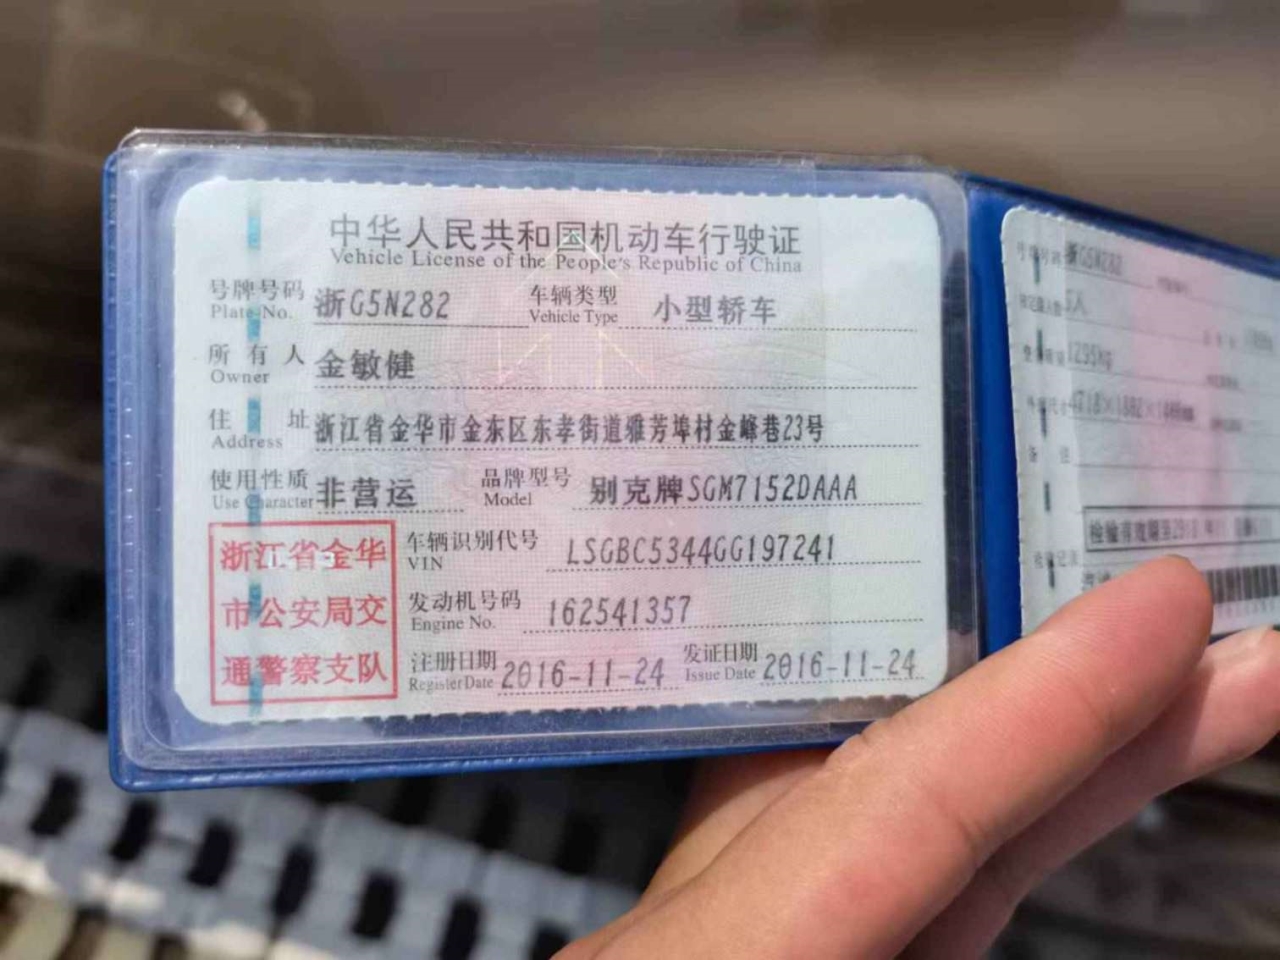 中华人民共和国机动车行驶证
Vehicle License of the People's Republic of China
号牌号码 浙G5N282 车辆类型 小型轿车
Plate No. Vehicle Type
所有人 金敏健
Owner
住址 浙江省金华市金东区东孝街道雅芳埠村金峰巷23号
Address
使用性质 非营运 品牌型号 别克牌SGM7152DAAA
Use Character Model
浙江省金华
市公安局交
通警察支队
车辆识别代号 LSGBC5344GG197241
VIN
发动机号码 162541357
Engine No.
注册日期 2016-11-24 发证日期 2016-11-24
Register Date Issue Date
浙G5N282
5人
1295kg
备注
检验有效期至